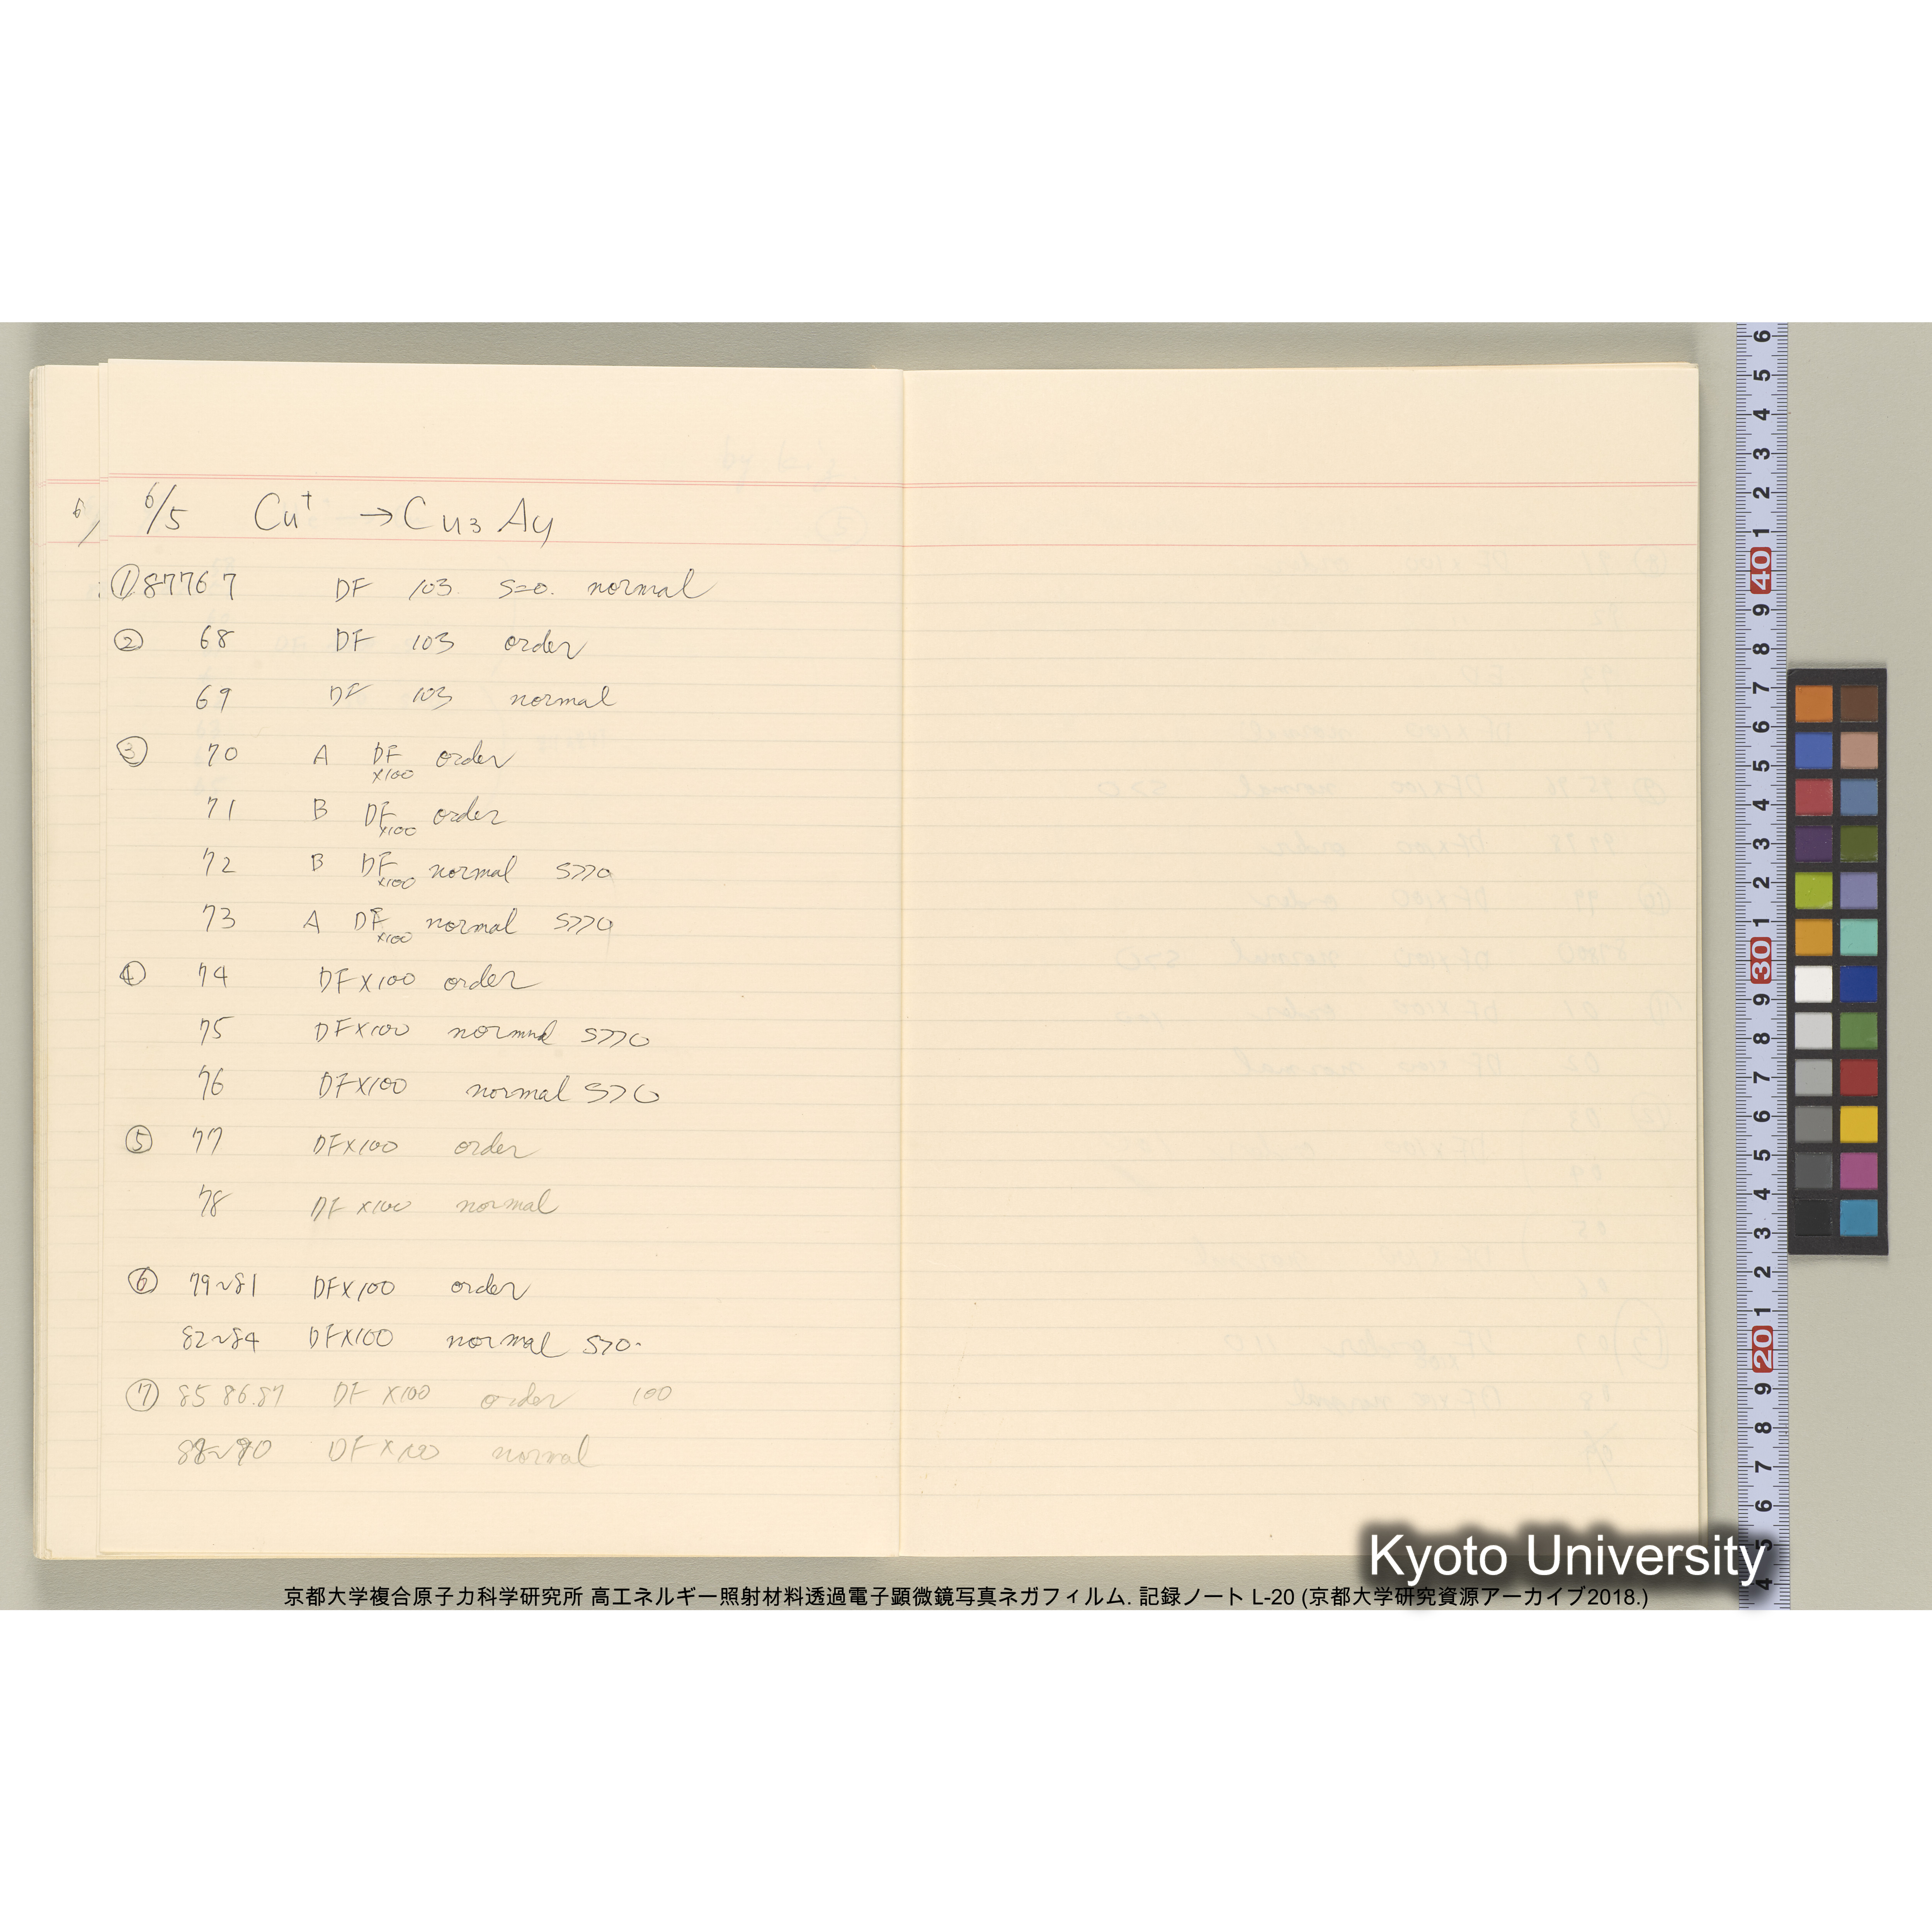 6/5 Cu⁺ → Cu3 Au
① 87767 DF 103 S=0. normal
② 68 DF 103 order
69 DF 103 normal
③ 70 A DF x100 order
71 B DF x100 order
72 B DF x100 normal S>>0
73 A DF x100 normal S>>0
④ 74 DFx100 order
75 DFx100 normal S>>0
76 DFx100 normal S>>0
⑤ 77 DFx100 order
78 DF x100 normal
⑥ 79~81 DFx100 order
82~84 DFx100 normal S>0.
⑦ 85 86.87 DF x100 order 100
88~90 DF x100 normal
Kyoto University
京都大学複合原子力科学研究所 高エネルギー照射材料透過電子顕微鏡写真ネガフィルム. 記録ノート L-20 (京都大学研究資源アーカイブ2018.)